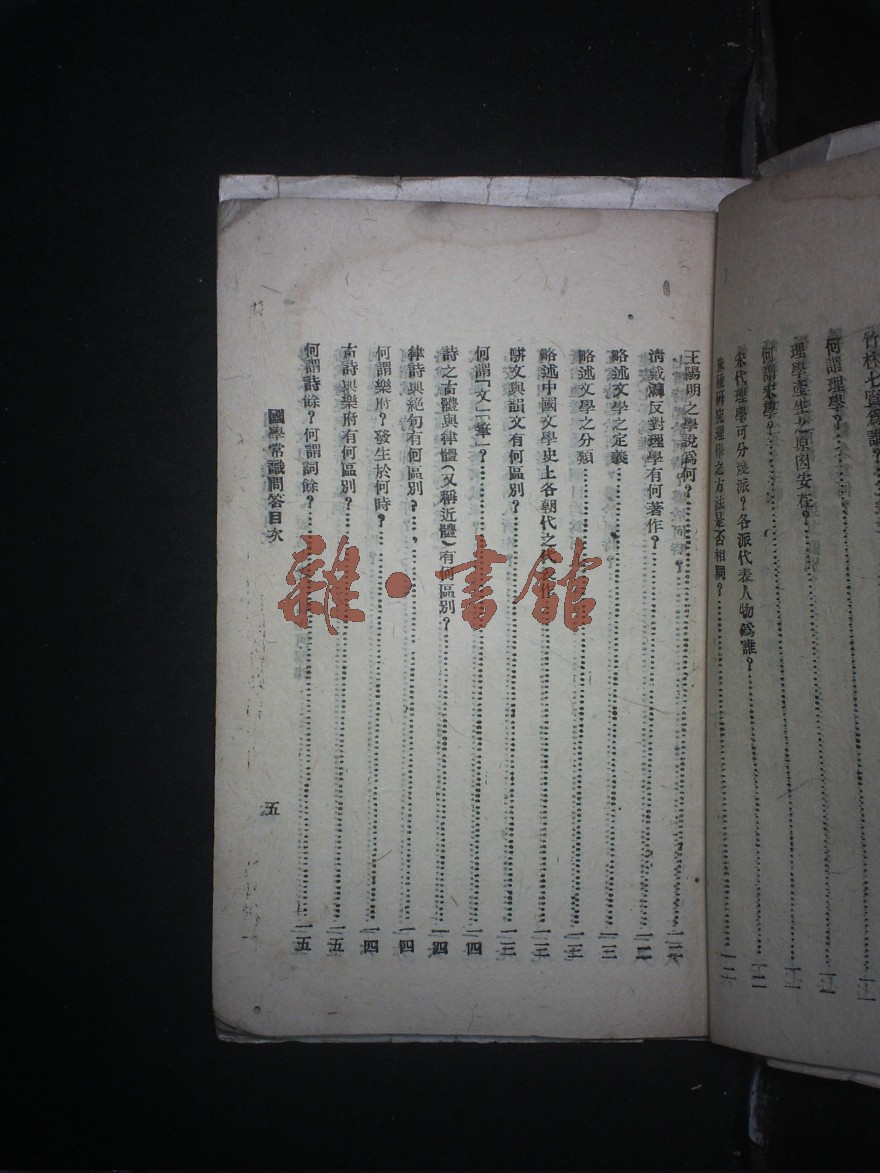 竹林七賢爲誰？……一一
何謂理學？……一一
理學產生之原因安在？……一二
何謂宋學？……一二
宋代理學可分幾派？各派代表人物爲誰？
研究理學之方法是否相同？……一二
王陽明之學說爲何？……一二
淸戴震反對理學有何著作？……一三
略述文學之定義……一三
略述文學之分類……一三
略述中國文學史上各朝代之代表作……一三
駢文與韻文有何區別？……一三
何謂「文」「筆」？……一四
詩之古體與律體（又稱近體）有何區別？……一四
律詩與絕句有何區別？……一四
何謂樂府？發生於何時？……一四
古詩與樂府有何區別？……一五
何謂詩餘？何謂詞餘？……一五
國學常識問答目次
五
雜·書館